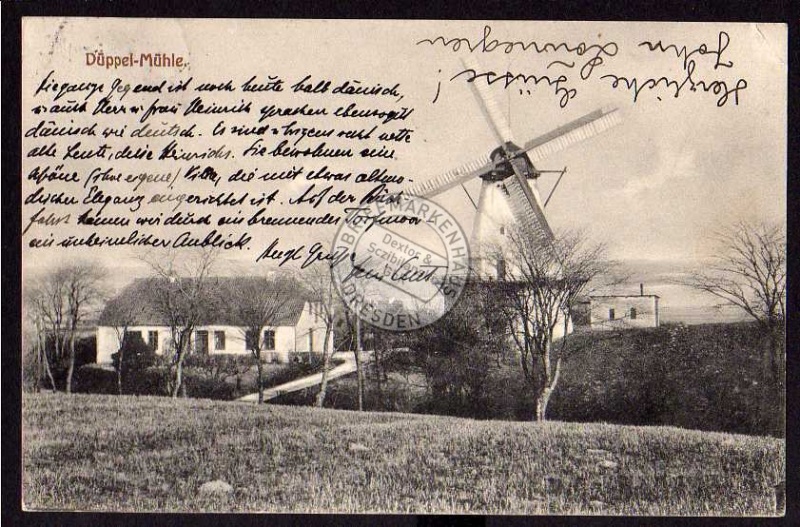 Düppel-Mühle.
Die ganze Gegend ist noch heute halb dänisch,
auch Herr u. Frau Heinrich sprachen ebensogut
dänisch wie deutsch. Es sind übrigens recht nette
alte Leute, diese Heinrichs. Sie bewohnen eine
schöne (ihre eigene) Villa, die mit etwas altmo-
discher Eleganz eingerichtet ist. Auf der Rück-
fahrt kamen wir durch ein brennendes Torfmoor
ein unheimlicher Anblick.
Herzl. Grüße
Kurt
Herzliche Grüsse!
John
BRIEFMARKENHAUS
Dextor &
DRESDEN